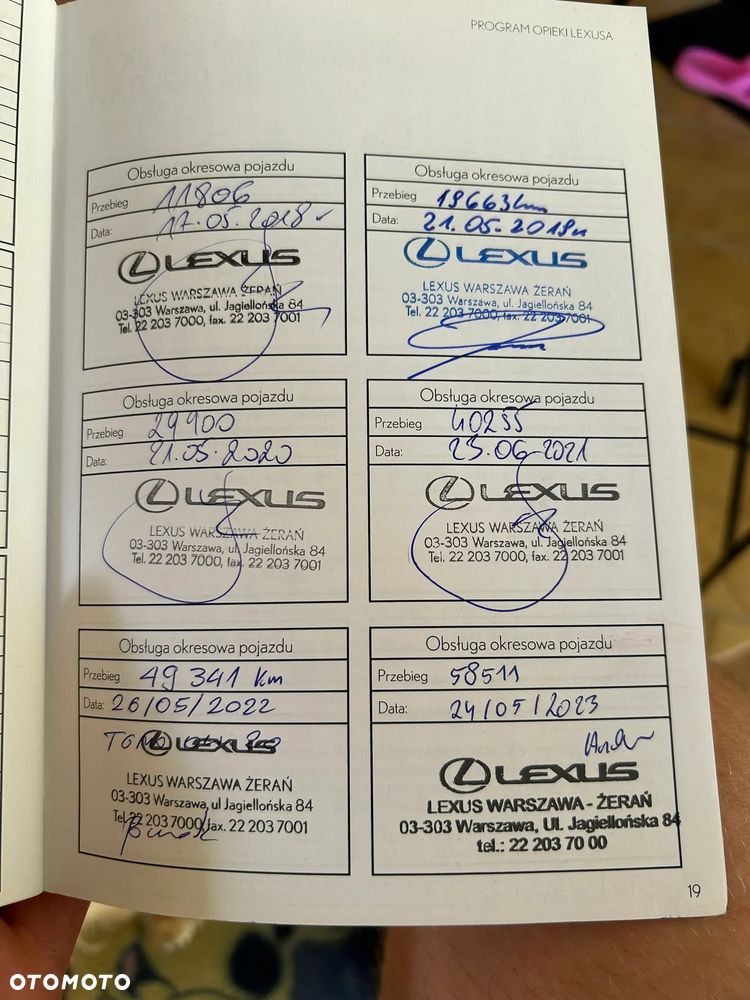 PROGRAM OPIEKI LEXUSA
Obsługa okresowa pojazdu
Przebieg 11806
Data: 17.05.2018
LEXUS
LEXUS WARSZAWA ŻERAŃ
03-303 Warszawa, ul. Jagiellońska 84
Tel. 22 203 7000, fax. 22 203 7001
Obsługa okresowa pojazdu
Przebieg 19663km
Data: 21.05.2019r
LEXUS
LEXUS WARSZAWA ŻERAŃ
03-303 Warszawa, ul. Jagiellońska 84
Tel. 22 203 7000, fax. 22 203 7001
Obsługa okresowa pojazdu
Przebieg 29900
Data: 21.05.2020
LEXUS
LEXUS WARSZAWA ŻERAŃ
03-303 Warszawa, ul. Jagiellońska 84
Tel. 22 203 7000, fax. 22 203 7001
Obsługa okresowa pojazdu
Przebieg 40255
Data: 23.06.2021
LEXUS
LEXUS WARSZAWA ŻERAŃ
03-303 Warszawa, ul. Jagiellońska 84
Tel. 22 203 7000, fax. 22 203 7001
Obsługa okresowa pojazdu
Przebieg 49 341 km
Data: 26/05/2022
LEXUS
LEXUS WARSZAWA ŻERAŃ
03-303 Warszawa, ul Jagiellońska 84
Tel. 22 203 7000, fax. 22 203 7001
Obsługa okresowa pojazdu
Przebieg 58511
Data: 24/05/2023
LEXUS
LEXUS WARSZAWA - ŻERAŃ
03-303 Warszawa, Ul. Jagiellońska 84
tel.: 22 203 70 00
19
OTOMOTO